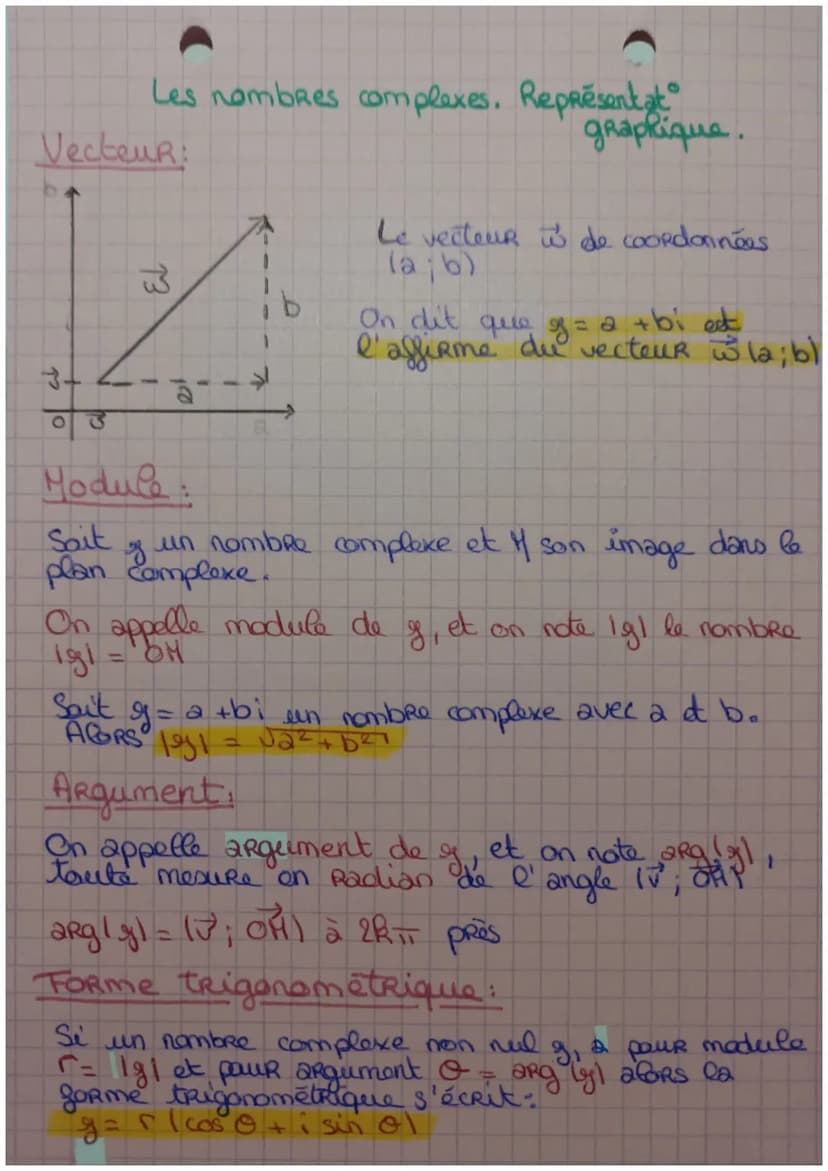 Les nombres complexes. Représentat°
graphique.
Vecteur:
b
w⃗
b
a
v⃗
0 u⃗
a
Le vecteur w⃗ de coordonnées
(a;b)
On dit que z = a + bi est
l'affirme du vecteur w⃗ (a;b)
Module:
Soit z un nombre complexe et M son image dans le
plan complexe.
On appelle module de z, et on note |z| le nombre
|z| = OM
Soit z = a + bi un nombre complexe avec a et b.
Alors |z| = √a² + b²
Argument:
On appelle argument de z, et on note arg(z),
toute mesure en radian de l'angle (v⃗; OM⃗)
arg(z) = (v⃗; OM⃗) à 2kπ près
Forme trigonométrique:
Si un nombre complexe non nul z, a pour module
r = |z| et pour argument θ = arg(z) alors la
forme trigonométrique s'écrit:
z = r (cos θ + i sin θ)